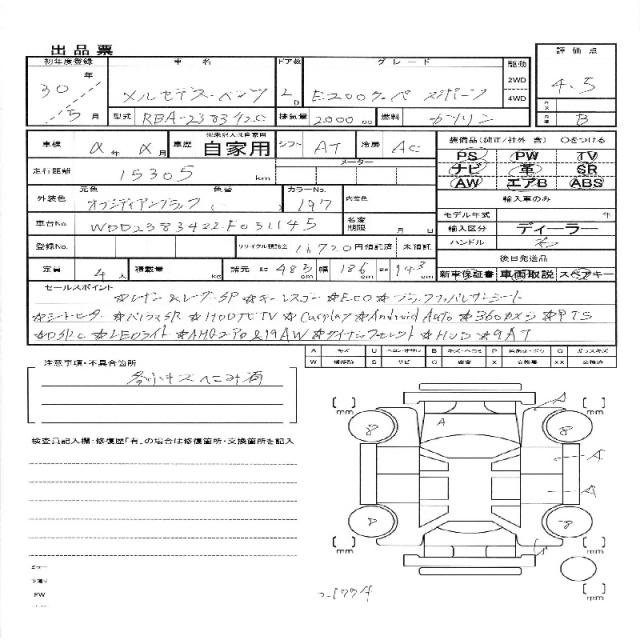 出品票
初年度登録 車名 ドア数 グレード 駆動 評価点
30年 メルセデス・ベンツ 2D E200クーペ スポーツ 2WD 4WD 4.5
5月 型式 RBA-238342C 排気量 2000cc 燃料 ガソリン B
車検 年 月 車歴 自家用 シフト AT 冷房 AC
装備品(純正/社外 含) ○をつける
走行距離 15305km メーター
PS PW TV
ナビ 革 SR
AW エアB ABS
元色 色番 カラーNo. 内装色
外装色 オブシディアンブラック ( ) 197
輸入車のみ
モデル年式 年
車台No. WDD2383422F051145 名変期限 月 日
輸入区分 ディーラー
登録No. リサイクル預託金 16720円預託済 未預託
ハンドル 右
後日発送品
定員 4人 積載量 kg 諸元 長483cm 幅186cm 高143cm
新車保証書 車両取説 スペアキー
セールスポイント
☆レザー&レザーSP ☆キーレスゴー ☆ECO ☆ブラックナッパレザーシート
☆シートヒーター ☆パノラマSR ☆HDDナビTV ☆Carplay ☆Android Auto ☆360カメラ ☆PTS
☆DSRC ☆LEDライト ☆AMGエアロ&19AW ☆ダイナミックセレクト ☆HUD ☆9AT
A キズ U P G ガラスキズ
W S サビ C XX
注意事項・不具合箇所
各小キズヘこみ有
検査員記入欄:修復歴「有」の場合は修復箇所・交換箇所を記入
[ ]mm [ ]mm
8 A 8 A
A
A
8 8
[ ]mm [ ]mm
[ ]mm